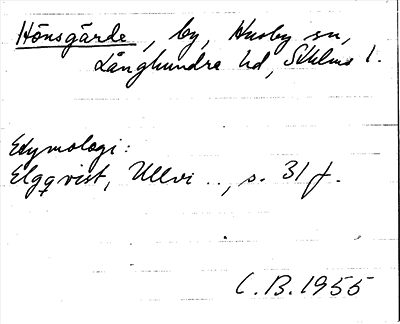 Hönsgärde, by, Husby sn,
Långhundra hd, Sthlms l.
Etymologi:
Elgqvist, Ullvi.., s. 31 f.
C.B. 1955